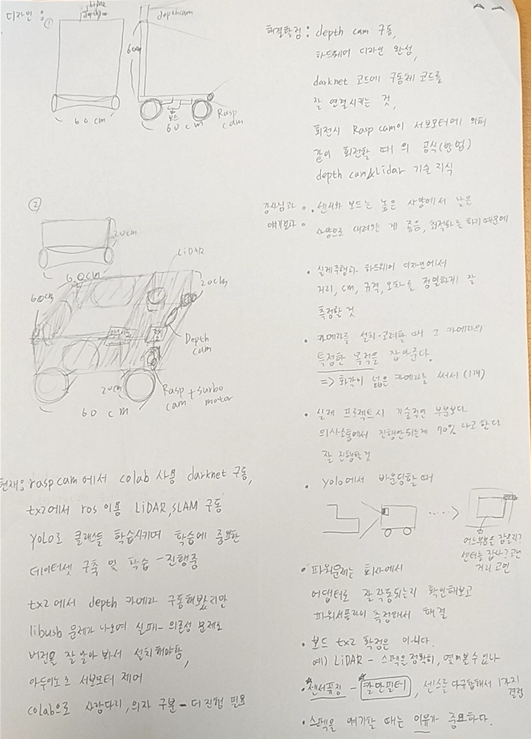 디자인 : ①
depthcam
60cm
보드
Rasp
cam
60cm
60cm
②
20cm
60cm
LiDAR
60cm
20cm
Depth
Cam
20cm
60cm
Rasp + surbo
cam motor
현재 : rasp cam에서 colab 사용 darknet 구동,
tx2에서 ros 이용 LiDAR, SLAM 구동
YOLO로 클래스들 학습시키며 학습에 중요한
데이터셋 구축 및 학습 - 진행중
tx2에서 depth 카메라 구동해봤지만
libusb 문제가 나오며 실패 - 의존성 문제로
버전을 잘 알아봐서 설치해야함,
아두이노로 서보모터 제어
colab으로 사람다리, 의자 구분 - 더 진행 필요
해결할점 : depth cam 구동,
하드웨어 디자인 완성,
darknet 코드에 구동체 코드를
잘 연결시키는 것,
회전시 Rasp cam이 서보모터에 의해
같이 회전할 때의 공식(방법)
depth cam & Lidar 기술 지식
센서와 보드는 높은 사양에서 낮은
사양으로 내려오는 게 좋음, 최적화는 하기 때문에
실제주행과 하드웨어 디자인에서
거리, cm, 규격, 오차를 정밀하게 잘
측정할 것
카메라를 설치·고려할 때 그 카메라의
특정한 목적을 잡아둔다.
=> 화각이 넓은 카메라를 써서 (1개)
실제 프로젝트시 기술적인 부분보다
의사소통에서 진행안되는게 70%라고 한다
잘 진행할것
yolo에서 바운딩할 때
어느부분을 잡을지?
센터를 잡나? 고려
거리 고려
파워문제는 회사에서
어댑터로 잘 작동되는지 확인해보고
파워서플라이 측정해서 해결
보드 tx2 확정은 아니다
예) LiDAR - 스펙은 정확히, 열어볼 수 있나
센서퓨징 - 칼만필터, 센스를 다 규합해서 1가지
결정
스펙을 얘기할 때는 이유가 중요하다.